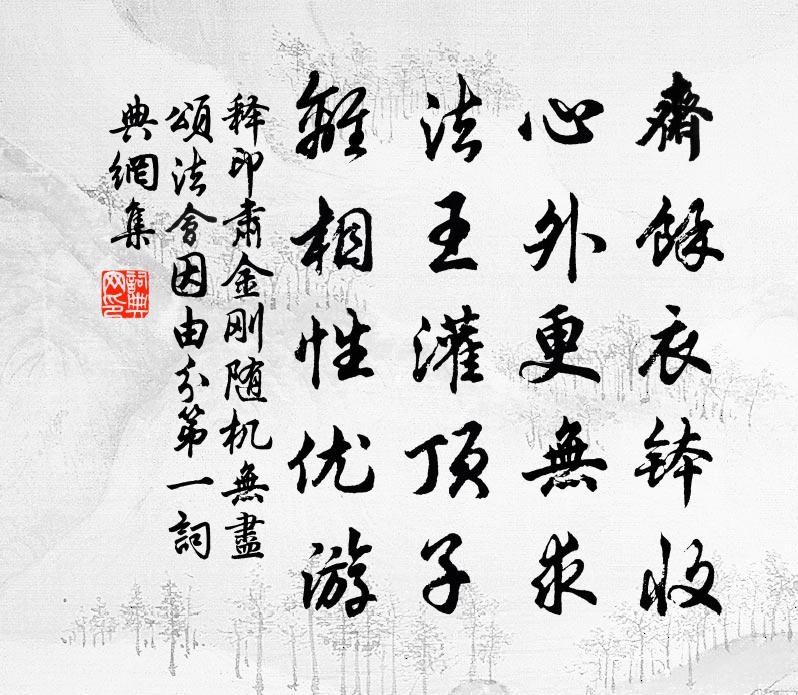 齋餘衣鉢收
心外更無求
法王灌頂子
離相性优游
释印肅金刚随机無盡
頌法會因由分第一詞
典網集
詞典
网印